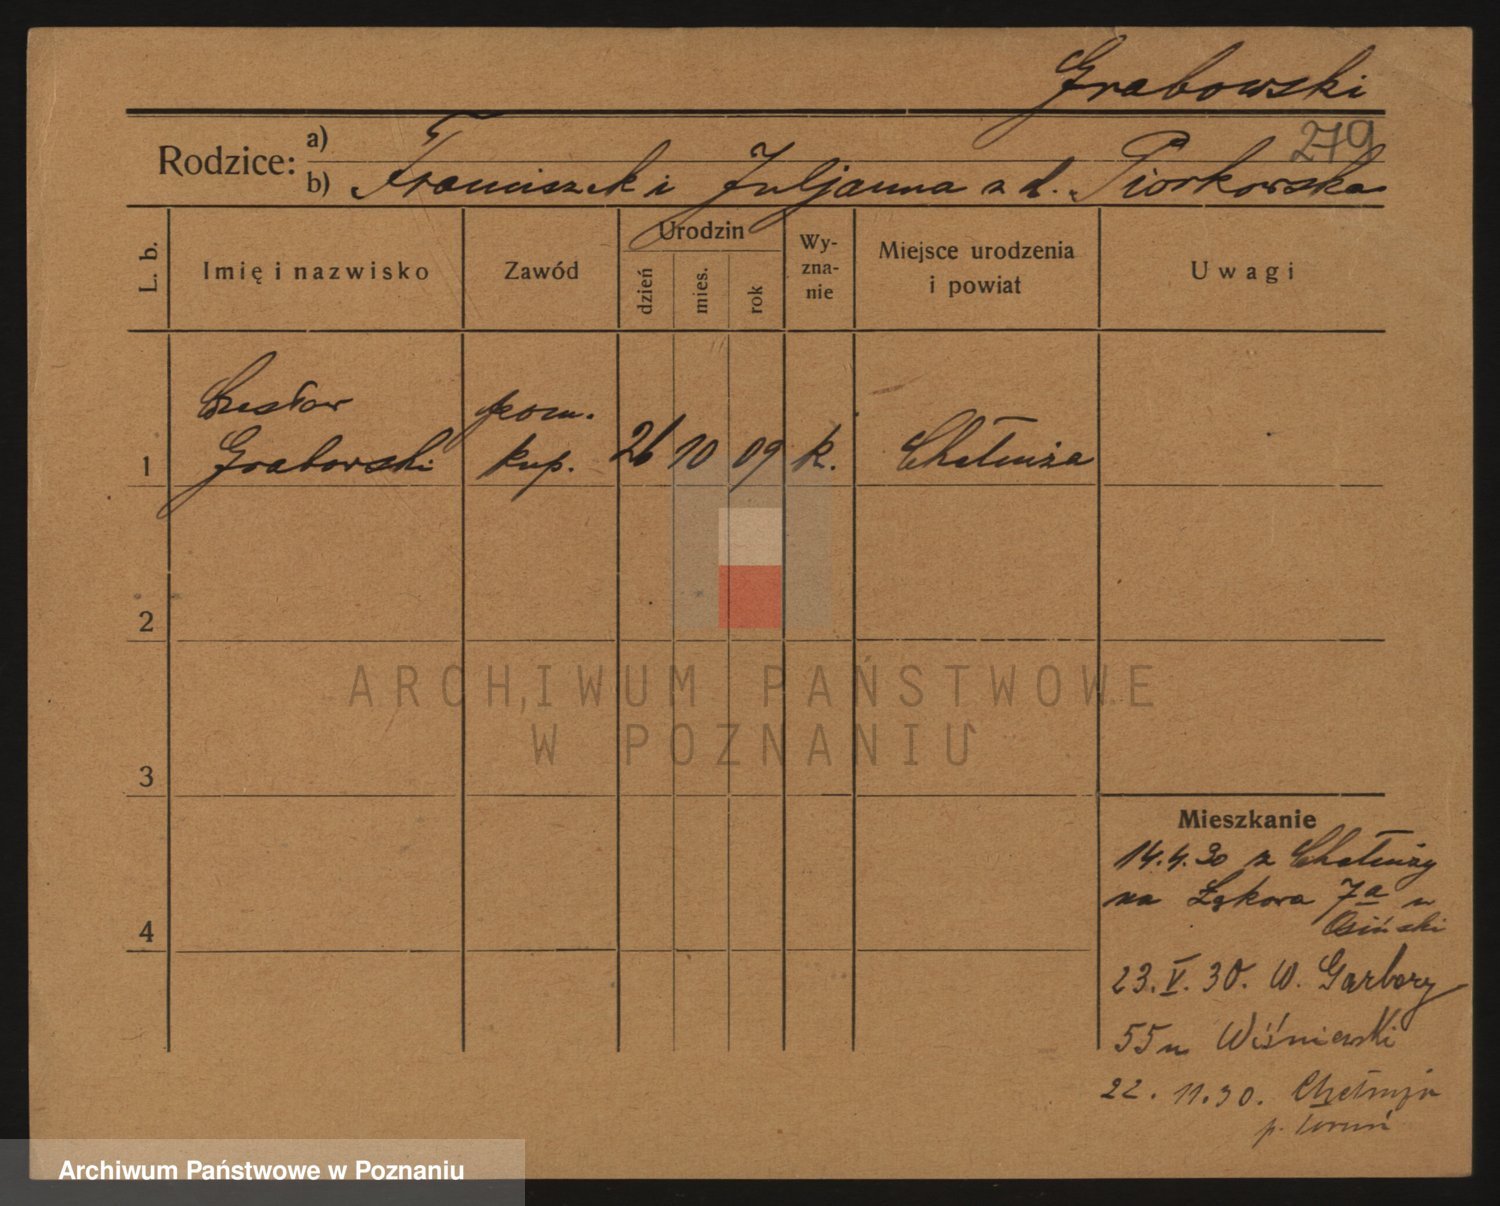 Grabowski
279
Rodzice:
a)
b) Franciszek i Juljanna z d. Piorkowska
L. b.
Imię i nazwisko
Zawód
Urodzin
dzień
mies.
rok
Wy-
zna-
nie
Miejsce urodzenia
i powiat
Uwagi
Czesław
pom.
1 Grabowski kup. 26 10 09 k. Chełmża
2
3
4
ARCHIWUM PAŃSTWOWE
W POZNANIU
Mieszkanie
14.4.30 z Chełmży
na Łąkowa 7a u
Osiński
23.V.30. W. Garbary
55 u Wiśniewski
22.11.30. Chełmża
p. Toruń
Archiwum Państwowe w Poznaniu